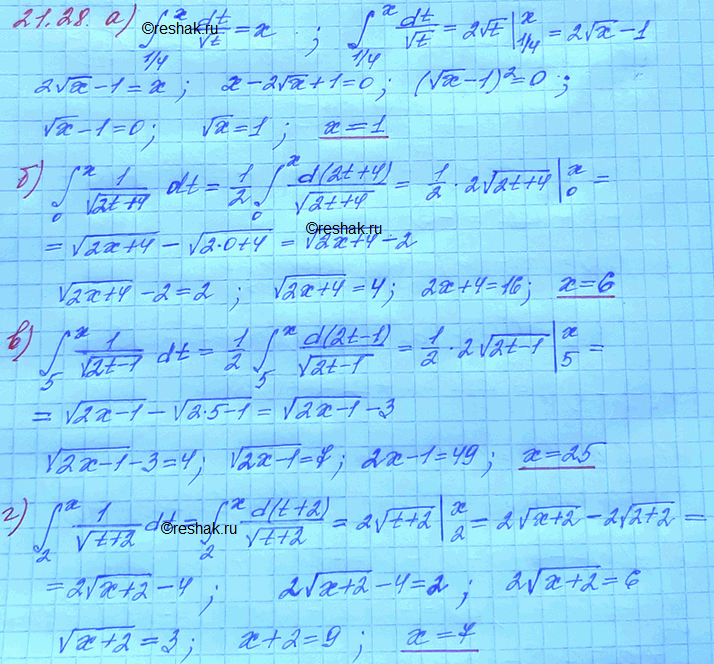 21.28. а) ∫_{1/4}^{x} dt/√t = x ; ∫_{1/4}^{x} dt/√t = 2√t |_{1/4}^{x} = 2√x − 1
2√x − 1 = x ; x − 2√x + 1 = 0 ; (√x − 1)² = 0 ;
√x − 1 = 0 ; √x = 1 ; x = 1
б) ∫_{0}^{x} 1/√(2t+4) dt = 1/2 ∫_{0}^{x} d(2t+4)/√(2t+4) = 1/2 · 2√(2t+4) |_{0}^{x} =
= √(2x+4) − √(2·0+4) = √(2x+4) − 2
√(2x+4) − 2 = 2 ; √(2x+4) = 4 ; 2x+4 = 16 ; x = 6
в) ∫_{5}^{x} 1/√(2t−1) dt = 1/2 ∫_{5}^{x} d(2t−1)/√(2t−1) = 1/2 · 2√(2t−1) |_{5}^{x} =
= √(2x−1) − √(2·5−1) = √(2x−1) − 3
√(2x−1) − 3 = 4 ; √(2x−1) = 7 ; 2x−1 = 49 ; x = 25
г) ∫_{2}^{x} 1/√(t+2) dt = ∫_{2}^{x} d(t+2)/√(t+2) = 2√(t+2) |_{2}^{x} = 2√(x+2) − 2√(2+2) =
= 2√(x+2) − 4 ; 2√(x+2) − 4 = 2 ; 2√(x+2) = 6
√(x+2) = 3 ; x+2 = 9 ; x = 7
©reshak.ru
©reshak.ru
©reshak.ru